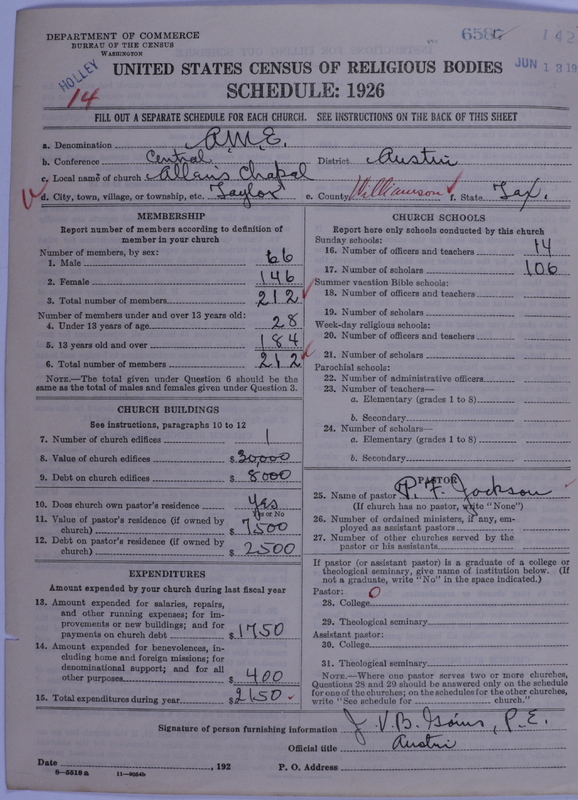 DEPARTMENT OF COMMERCE
BUREAU OF THE CENSUS
WASHINGTON
HOLLEY
14
142
JUN 18 19
UNITED STATES CENSUS OF RELIGIOUS BODIES
SCHEDULE: 1926
FILL OUT A SEPARATE SCHEDULE FOR EACH CHURCH. SEE INSTRUCTIONS ON THE BACK OF THIS SHEET
a. Denomination A.M.E.
b. Conference Central District Austin
c. Local name of church Allan's Chapal
d. City, town, village, or township, etc. Taylor e. County Williamson f. State Tax.
MEMBERSHIP
Report number of members according to definition of
member in your church
Number of members, by sex:
1. Male 66
2. Female 146
3. Total number of members 212
Number of members under and over 13 years old:
4. Under 13 years of age 28
5. 13 years old and over 184
6. Total number of members 212
NOTE.—The total given under Question 6 should be the
same as the total of males and females given under Question 3.
CHURCH BUILDINGS
See instructions, paragraphs 10 to 12
7. Number of church edifices 1
8. Value of church edifices $30,000
9. Debt on church edifices $8000
10. Does church own pastor's residence Yes
Yes or No
11. Value of pastor's residence (if owned by
church) $7500
12. Debt on pastor's residence (if owned by
church) $2500
EXPENDITURES
Amount expended by your church during last fiscal year
13. Amount expended for salaries, repairs,
and other running expenses; for im-
provements or new buildings; and for
payments on church debt $1750
14. Amount expended for benevolences, in-
cluding home and foreign missions; for
denominational support; and for all
other purposes $400
15. Total expenditures during year $2150
CHURCH SCHOOLS
Report here only schools conducted by this church
Sunday schools:
16. Number of officers and teachers 14
17. Number of scholars 106
Summer vacation Bible schools:
18. Number of officers and teachers
19. Number of scholars
Week-day religious schools:
20. Number of officers and teachers
21. Number of scholars
Parochial schools:
22. Number of administrative officers
23. Number of teachers—
a. Elementary (grades 1 to 8)
b. Secondary
24. Number of scholars—
a. Elementary (grades 1 to 8)
b. Secondary
PASTOR
25. Name of pastor P. F. Jackson
(If church has no pastor, write "None")
26. Number of ordained ministers, if any, em-
ployed as assistant pastors
27. Number of other churches served by the
pastor or his assistants
If pastor (or assistant pastor) is a graduate of a college or
theological seminary, give name of institution below. (If
not a graduate, write "No" in the space indicated.)
Pastor: 0
28. College
29. Theological seminary
Assistant pastor:
30. College
31. Theological seminary
NOTE.—Where one pastor serves two or more churches,
Questions 28 and 29 should be answered only on the schedule
for one of the churches; on the schedules for the other churches,
write "See schedule for church."
Signature of person furnishing information J. V. B. Goins, P.E.
Official title Austin
Date , 192 P. O. Address
8—5518 a 11—9054b